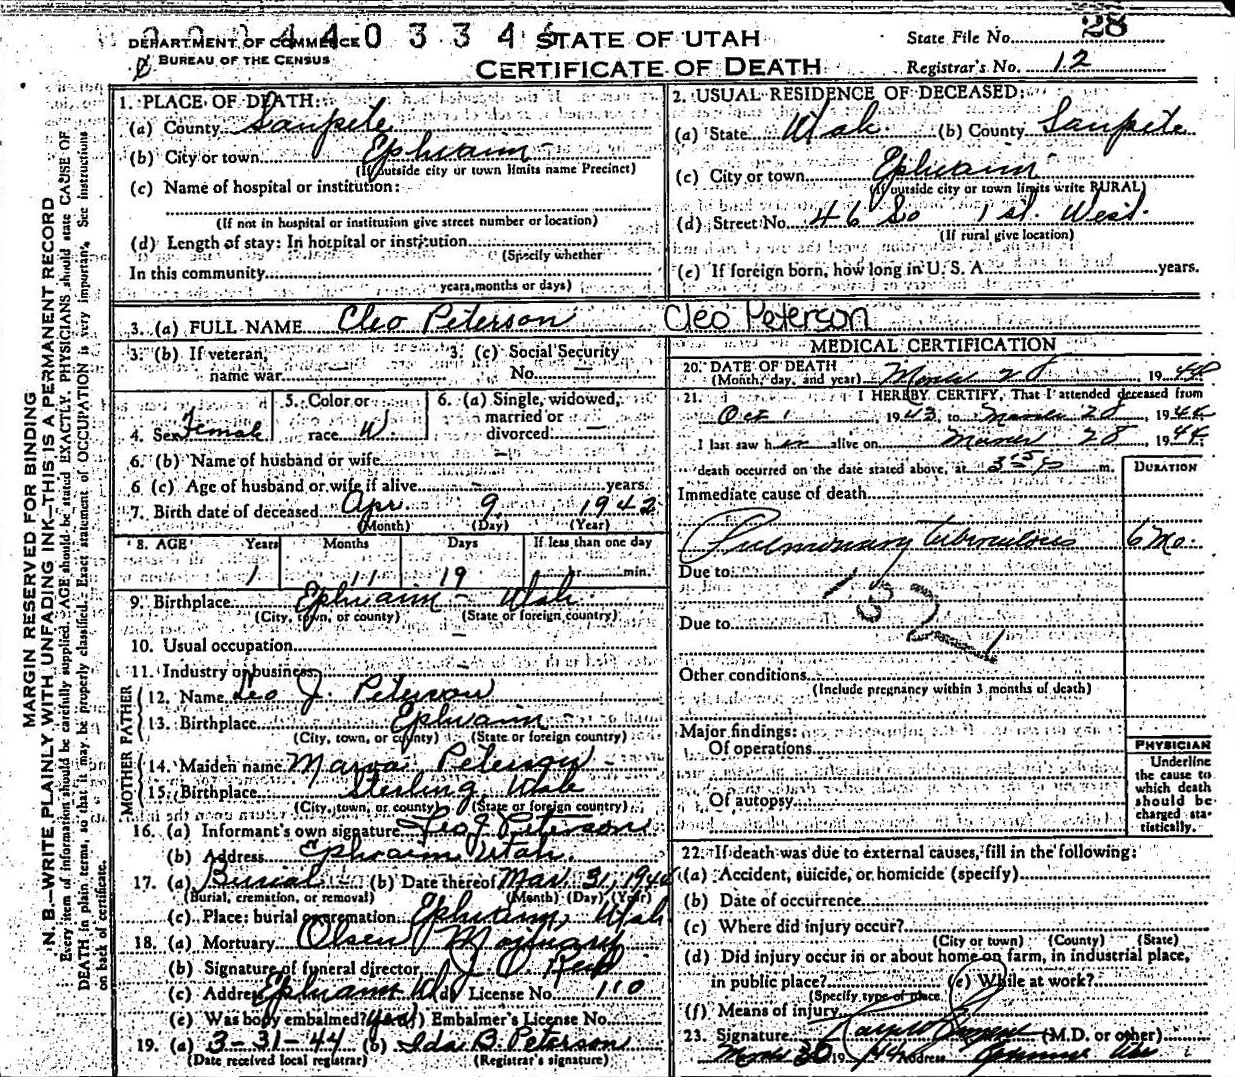 DEPARTMENT OF COMMERCE
BUREAU OF THE CENSUS
STATE OF UTAH
CERTIFICATE OF DEATH
State File No. 28
Registrar's No. 12
MARGIN RESERVED FOR BINDING
N. B.—WRITE PLAINLY WITH UNFADING INK—THIS IS A PERMANENT RECORD
Every item of information should be carefully supplied. AGE should be stated EXACTLY. PHYSICIANS should state CAUSE OF
DEATH in plain terms, so that it may be properly classified. Exact statement of OCCUPATION is very important. See instructions
on back of certificate.
1. PLACE OF DEATH:
(a) County Sanpete
(b) City or town Ephraim
(If outside city or town limits name Precinct)
(c) Name of hospital or institution:
(If not in hospital or institution give street number or location)
(d) Length of stay: In hospital or institution
(Specify whether
In this community
years, months or days)
2. USUAL RESIDENCE OF DECEASED:
(a) State Utah (b) County Sanpete
(c) City or town Ephraim
(If outside city or town limits write RURAL)
(d) Street No. 46 So 1st. West.
(If rural give location)
(e) If foreign born, how long in U. S. A. years.
3. (a) FULL NAME Cleo Peterson Cleo Peterson
3. (b) If veteran, name war —
3. (c) Social Security No. —
4. Sex Female
5. Color or race W.
6. (a) Single, widowed, married or divorced: —
6. (b) Name of husband or wife —
6 (c) Age of husband or wife if alive - years.
7. Birth date of deceased Apr. 9, 1942
(Month) (Day) (Year)
8. AGE Years Months Days If less than one day
1 11 19 hr. min.
9. Birthplace Ephraim - Utah.
(City, town, or county) (State or foreign country)
10. Usual occupation —
11. Industry or business -
FATHER
12. Name Leo J. Peterson
13. Birthplace Ephraim -
(City, town, or county) (State or foreign country)
MOTHER
14. Maiden name Marva Peterson -
15. Birthplace Sterling Utah
(City, town, or county) (State or foreign country)
16. (a) Informant's own signature Leo J. Peterson
(b) Address Ephraim Utah.
17. (a) Burial - (b) Date thereof Mar. 31, 1944
(Burial, cremation, or removal) (Month) (Day) (Year)
(c) Place: burial or cremation Ephraim, Utah
18. (a) Mortuary Olsen Mortuary
(b) Signature of funeral director
(c) Address Ephraim (d) License No. 110
(e) Was body embalmed? (yes) (f) Embalmer's License No.
19. (a) 3-31-44 (b) Ida B. Peterson
(Date received local registrar) (Registrar's signature)
MEDICAL CERTIFICATION
20. DATE OF DEATH
(Month, day, and year) March 28 1944
21. I HEREBY CERTIFY, That I attended deceased from
Oct 1 1943 to March 28, 1944
I last saw her alive on March 28 1944
death occurred on the date stated above, at 3:15 P m.
DURATION
Immediate cause of death
Pulmonary tuberculous 6 Mo.
Due to
Due to
Other conditions
(Include pregnancy within 3 months of death)
Major findings:
Of operations
Of autopsy
PHYSICIAN
Underline
the cause to
which death
should be
charged sta-
tistically.
22. If death was due to external causes, fill in the following:
(a) Accident, suicide, or homicide (specify)
(b) Date of occurrence
(c) Where did injury occur?
(City or town) (County) (State)
(d) Did injury occur in or about home on farm, in industrial place,
in public place? (e) While at work?
(Specify type of place
(f) Means of injury
23. Signature (M.D. or other)
March 30 1944 Address